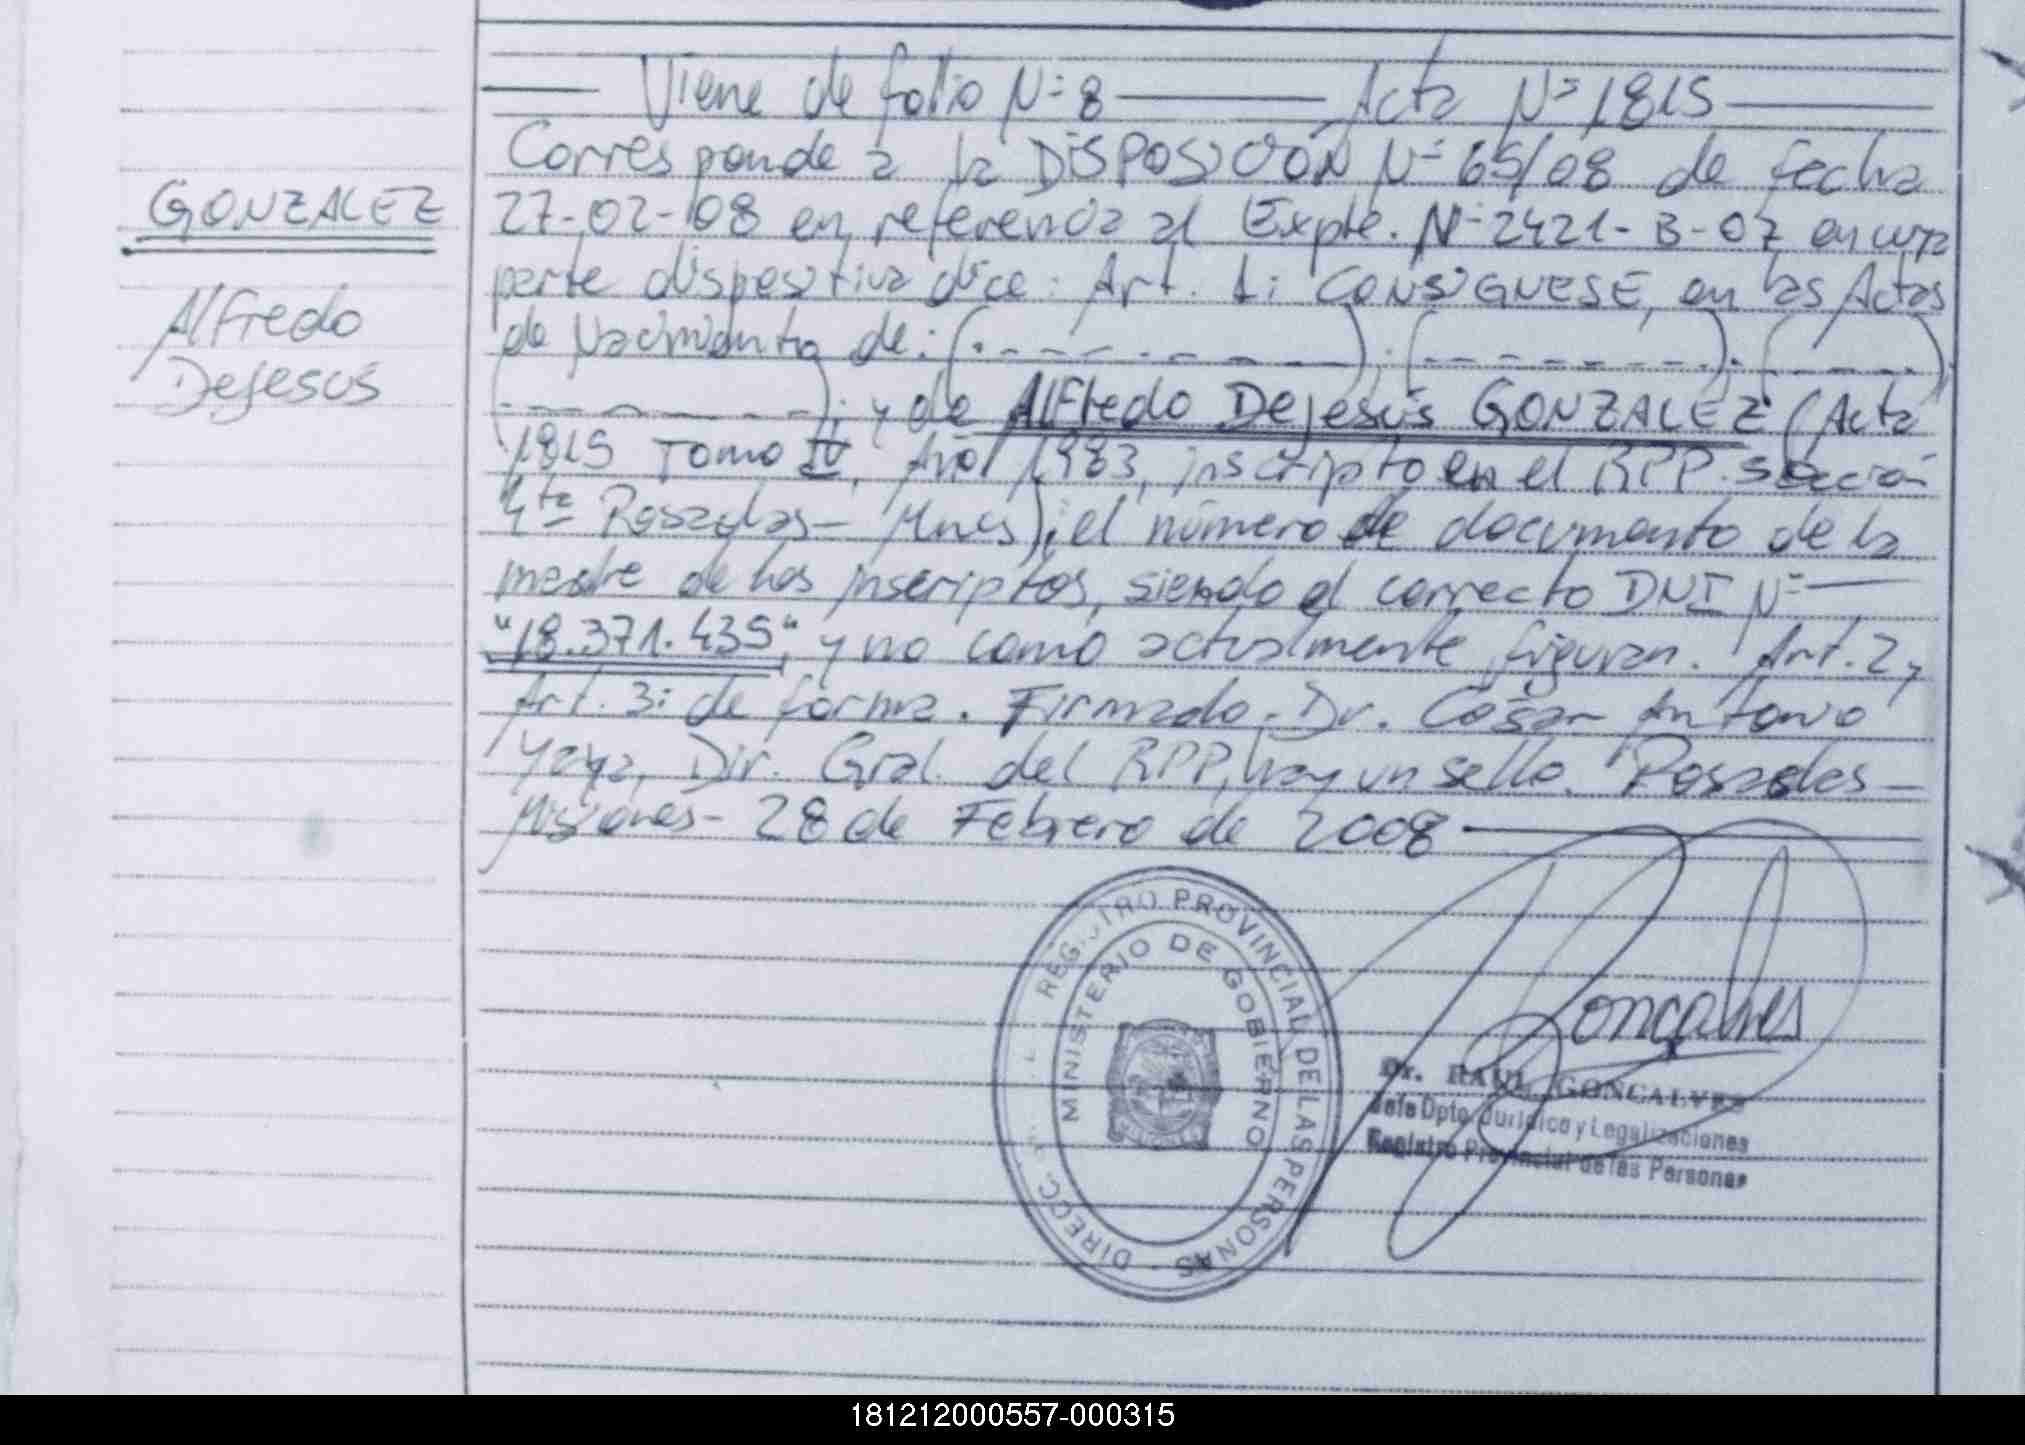 Viene de folio Nº 8 ——— Acta Nº 1815 ———
Corresponde a la DISPOSICIÓN Nº 65/08 de fecha
GONZALEZ
27-02-08 en referencia al Expte. Nº 2421-B-07, en cuya
parte dispositiva dice: Art. 1: CONSIGNESE, en las Actas
Alfredo
Dejesús
de Nacimiento de: (- - - - - - - -); (- - - - - - - -); (- - - - -)
(- - - - - - - -); y de Alfredo Dejesús GONZALEZ (Acta
1815 Tomo IV, Año 1983, inscripto en el RPP. Sección
4ta Posadas - Mnes); el número de documento de la
madre de los inscriptos, siendo el correcto DNI Nº —
"18.371.435", y no como actualmente figuran. Art. 2 y
Art. 3: de forma. Firmado. Dr. César Antonio
Yaya, Dir. Gral. del RPP, hay un sello. Posadas -
Misiones - 28 de Febrero de 2008 ———
DIRECC. REGISTRO PROVINCIAL DE LAS PERSONAS
MINISTERIO DE GOBIERNO
Gonçalves
Dr. RAUL GONCALVES
Jefe Dpto. Jurídico y Legalizaciones
Registro Provincial de las Personas
181212000557-000315